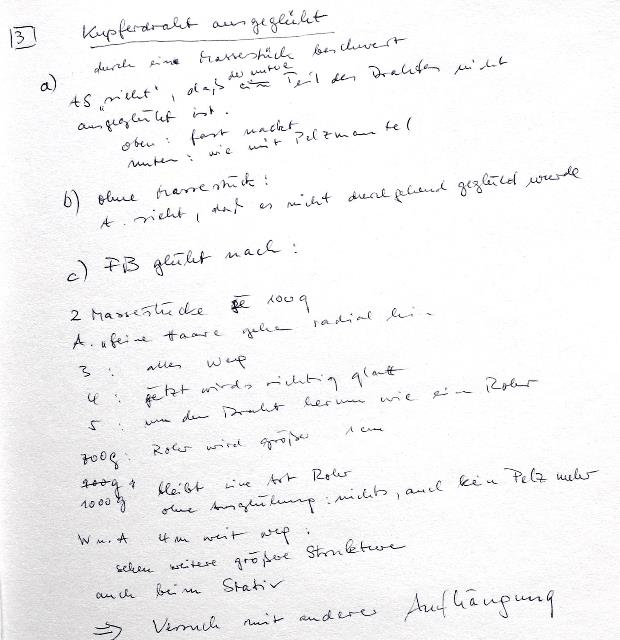 3 Kupferdraht ausgeglüht
durch eine Massestück beschwert
a) AS "sieht", daß der untere Teil des Drahtes nicht
ausgeglüht ist.
oben: fast nackt
unten: wie mit Pelzmantel
b) ohne Massestück:
A. sieht, daß es nicht durchgehend geglüht wurde
c) FB glüht nach:
2 Massestücke je 100g
A. "feine Haare gehen radial hin
3: alles weg
4: jetzt wirds richtig glatt
5: um den Draht herum wie ein Rohr
700g: Rohr wird größer 1cm
1000g bleibt eine Art Rohr
ohne Ausglühung: nichts, auch kein Pelz mehr
W u. A 4m weit weg:
sehen weitere größere Strukturen
auch beim Stativ
⇒ Versuch mit anderer Aufhängung